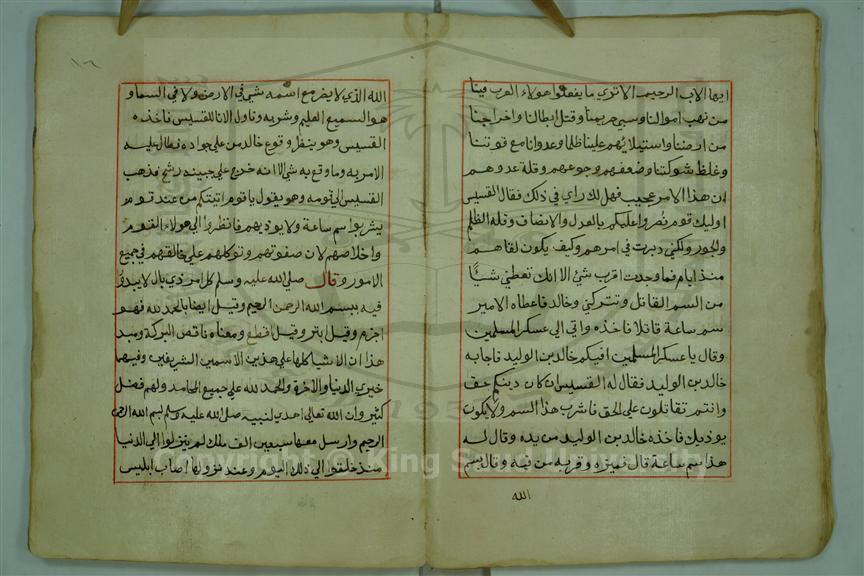 ايها الاب الرحيم الا تري ما يفعلوا هولاء العرب فينا
من نهب اموالنا وسبي حريمنا وقتل ابطالنا واخراجنا
من ارضنا واستيلائهم علينا ظلما وعدوانا مع قوتنا
وغلظ شوكتنا وضعفهم وجوعهم وقلة عدوهم
ان هذا الامر عجيب فهل لك راي في ذلك فقال القسيس
اوليك قوم نصروا عليكم بالعدل والانصاف وقلة الظلم
والجور ولكني دبرت في امرهم وكيف يكون لقاهم
منذ ايام فما وجدت اقرب شئ الا انك تعطني شيئا
من السم القاتل وتتركني وخالد فاعطاه الامير
سم ساعة قاتلا فاخذه واتي الي عسكر المسلمين
وقال يا عسكر المسلمين افيكم خالد بن الوليد فاجابه
خالد بن الوليد فقال له القسيس ان كان دينكم حق
وانتم تقاتلون علي الحق فاشرب هذا السم ولا يكون
يوذيك فاخذه خالد بن الوليد من يده وقال له
هذا سم ساعة قال فميزه وقربه من فيه وقال بسم
الله
١٦
الله الذي لا يضر مع اسمه شي في الارض ولا في السما و
هو السميع العليم وشربه وناول الانا للقسيس فاخذه
القسيس وهو ينظر وقوع خالد من علي جواده فطال عليه
الامر به وما وقع به شي الا انه خرج علي جبينه رشح فذهب
القسيس الي قومه وهو يقول يا قوم اتيتكم من عند قوم
يشربوا سم ساعة ولا يوذيهم فانظروا الي هولاء القوم
واخلاصهم لان صفوتهم وتوكلهم علي خالقهم في جميع
الامور وقال صلي الله عليه وسلم كل امر ذي بال لا يبدؤ
فيه ببسم الله الرحمن الرحيم وقيل ايضا بالحمد لله فهو
اجزم وقيل ابتر وقيل اقطع ومعناه ناقص البركة وميد
هذا ان الاشيا كلها علي هذين الاسمين الشريفين وفيهما
خيري الدنيا والاخرة والحمد لله علي جميع المحامد ولهم فضل
كثير وان الله تعالي اهدي لنبيه صلي الله عليه وسلم بسم الله الرحمن
الرحيم وارسل معها سبعين الف ملك لم ينزلوا الي الدنيا
منذ خلقوا الي ذلك اليوم وعند نزولها اصاب ابليس
Copyright © King Saud University